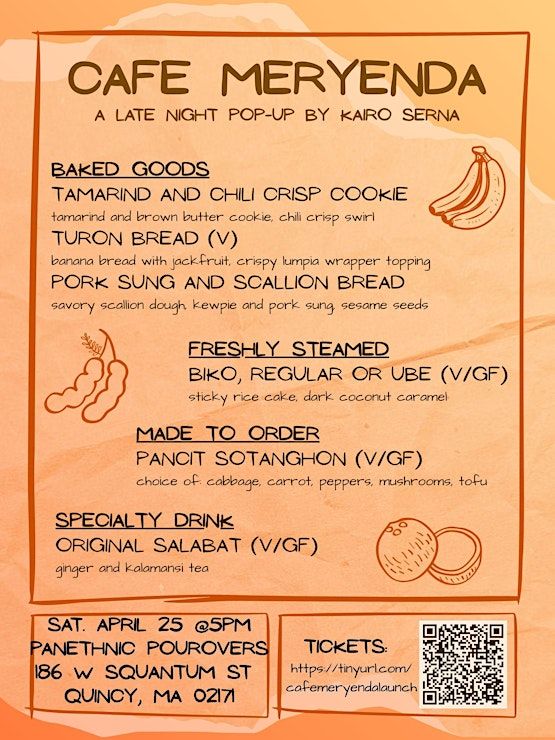 CAFE MERYENDA
A LATE NIGHT POP-UP BY KAIRO SERNA
BAKED GOODS
TAMARIND AND CHILI CRISP COOKIE
tamarind and brown butter cookie, chili crisp swirl
TURON BREAD (V)
banana bread with jackfruit, crispy lumpia wrapper topping
PORK SUNG AND SCALLION BREAD
savory scallion dough, kewpie and pork sung, sesame seeds
FRESHLY STEAMED
BIKO, REGULAR OR UBE (V/GF)
sticky rice cake, dark coconut caramel
MADE TO ORDER
PANCIT SOTANGHON (V/GF)
choice of: cabbage, carrot, peppers, mushrooms, tofu
SPECIALTY DRINK
ORIGINAL SALABAT (V/GF)
ginger and kalamansi tea
SAT. APRIL 25 @5PM
PANETHNIC POUROVERS
186 W SQUANTUM ST
QUINCY, MA 02171
TICKETS:
https://tinyurl.com/
cafemeryendalaunch